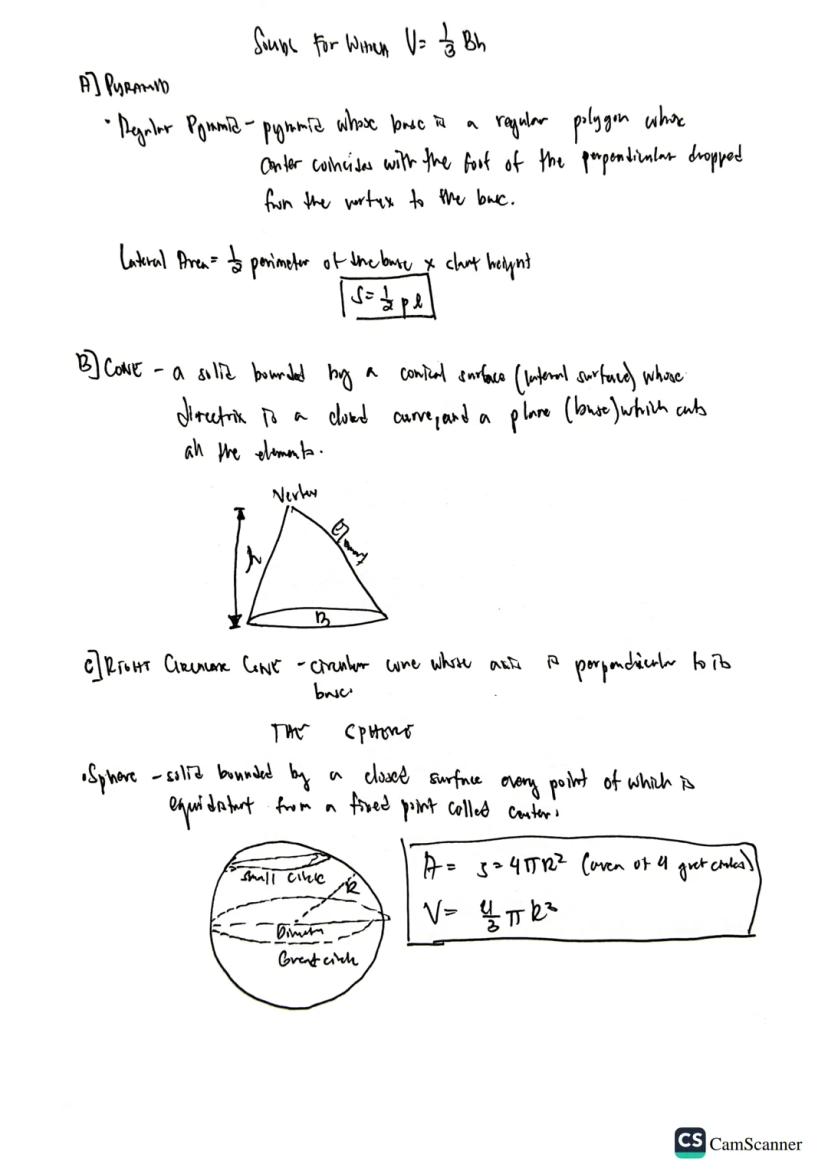 Solids For Which V = 1/3 Bh
A] PYRAMID
• Regular Pyramid - pyramid whose base is a regular polygon whose
center coincides with the foot of the perpendicular dropped
from the vertex to the base.
Lateral Area = 1/2 perimeter of the base x slant height
S = 1/2 pl
B] CONE - a solid bounded by a conical surface (lateral surface) whose
directrix is a closed curve, and a plane (base) which cuts
all the elements.
Vertex
h
B
C] RIGHT CIRCULAR CONE - circular cone whose axis is perpendicular to its
base.
THE SPHERE
• Sphere - solid bounded by a closed surface every point of which is
equidistant from a fixed point called center.
small circle
R
Great circle
A = S = 4πR² (area of 4 great circles)
V = 4/3 πR³
CS CamScanner